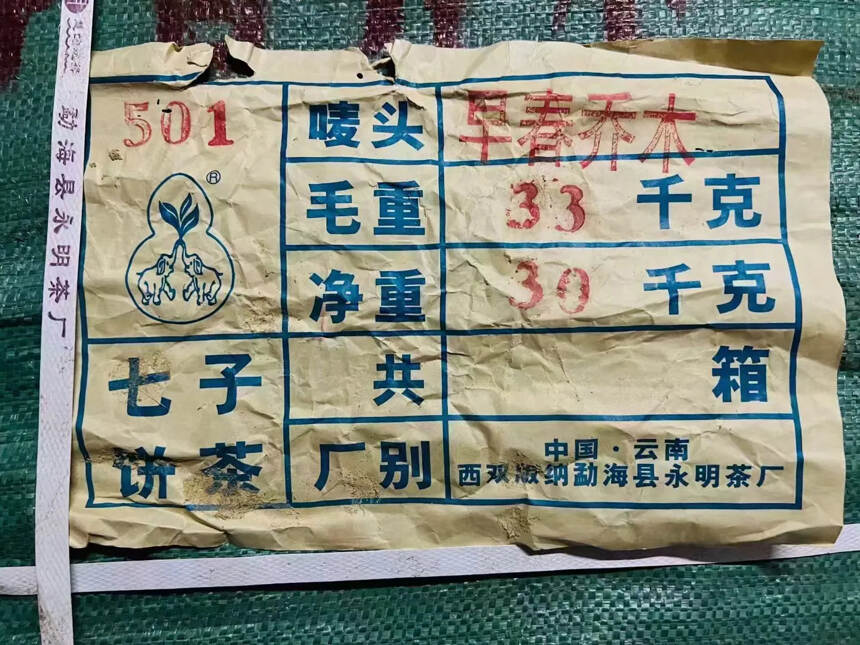 勐海县永明茶厂
501
唛头 早春乔木
毛重 33 千克
®
净重 30 千克
七子
饼茶
共 箱
厂别
中国·云南
西双版纳勐海县永明茶厂